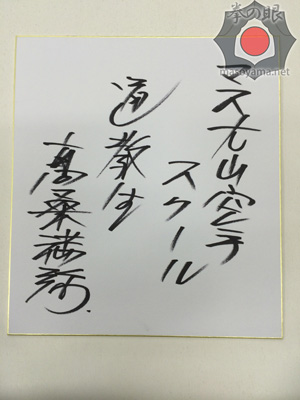 拳の眼
masoyama.net
マス大山空手
スクール
道塾生
高桑